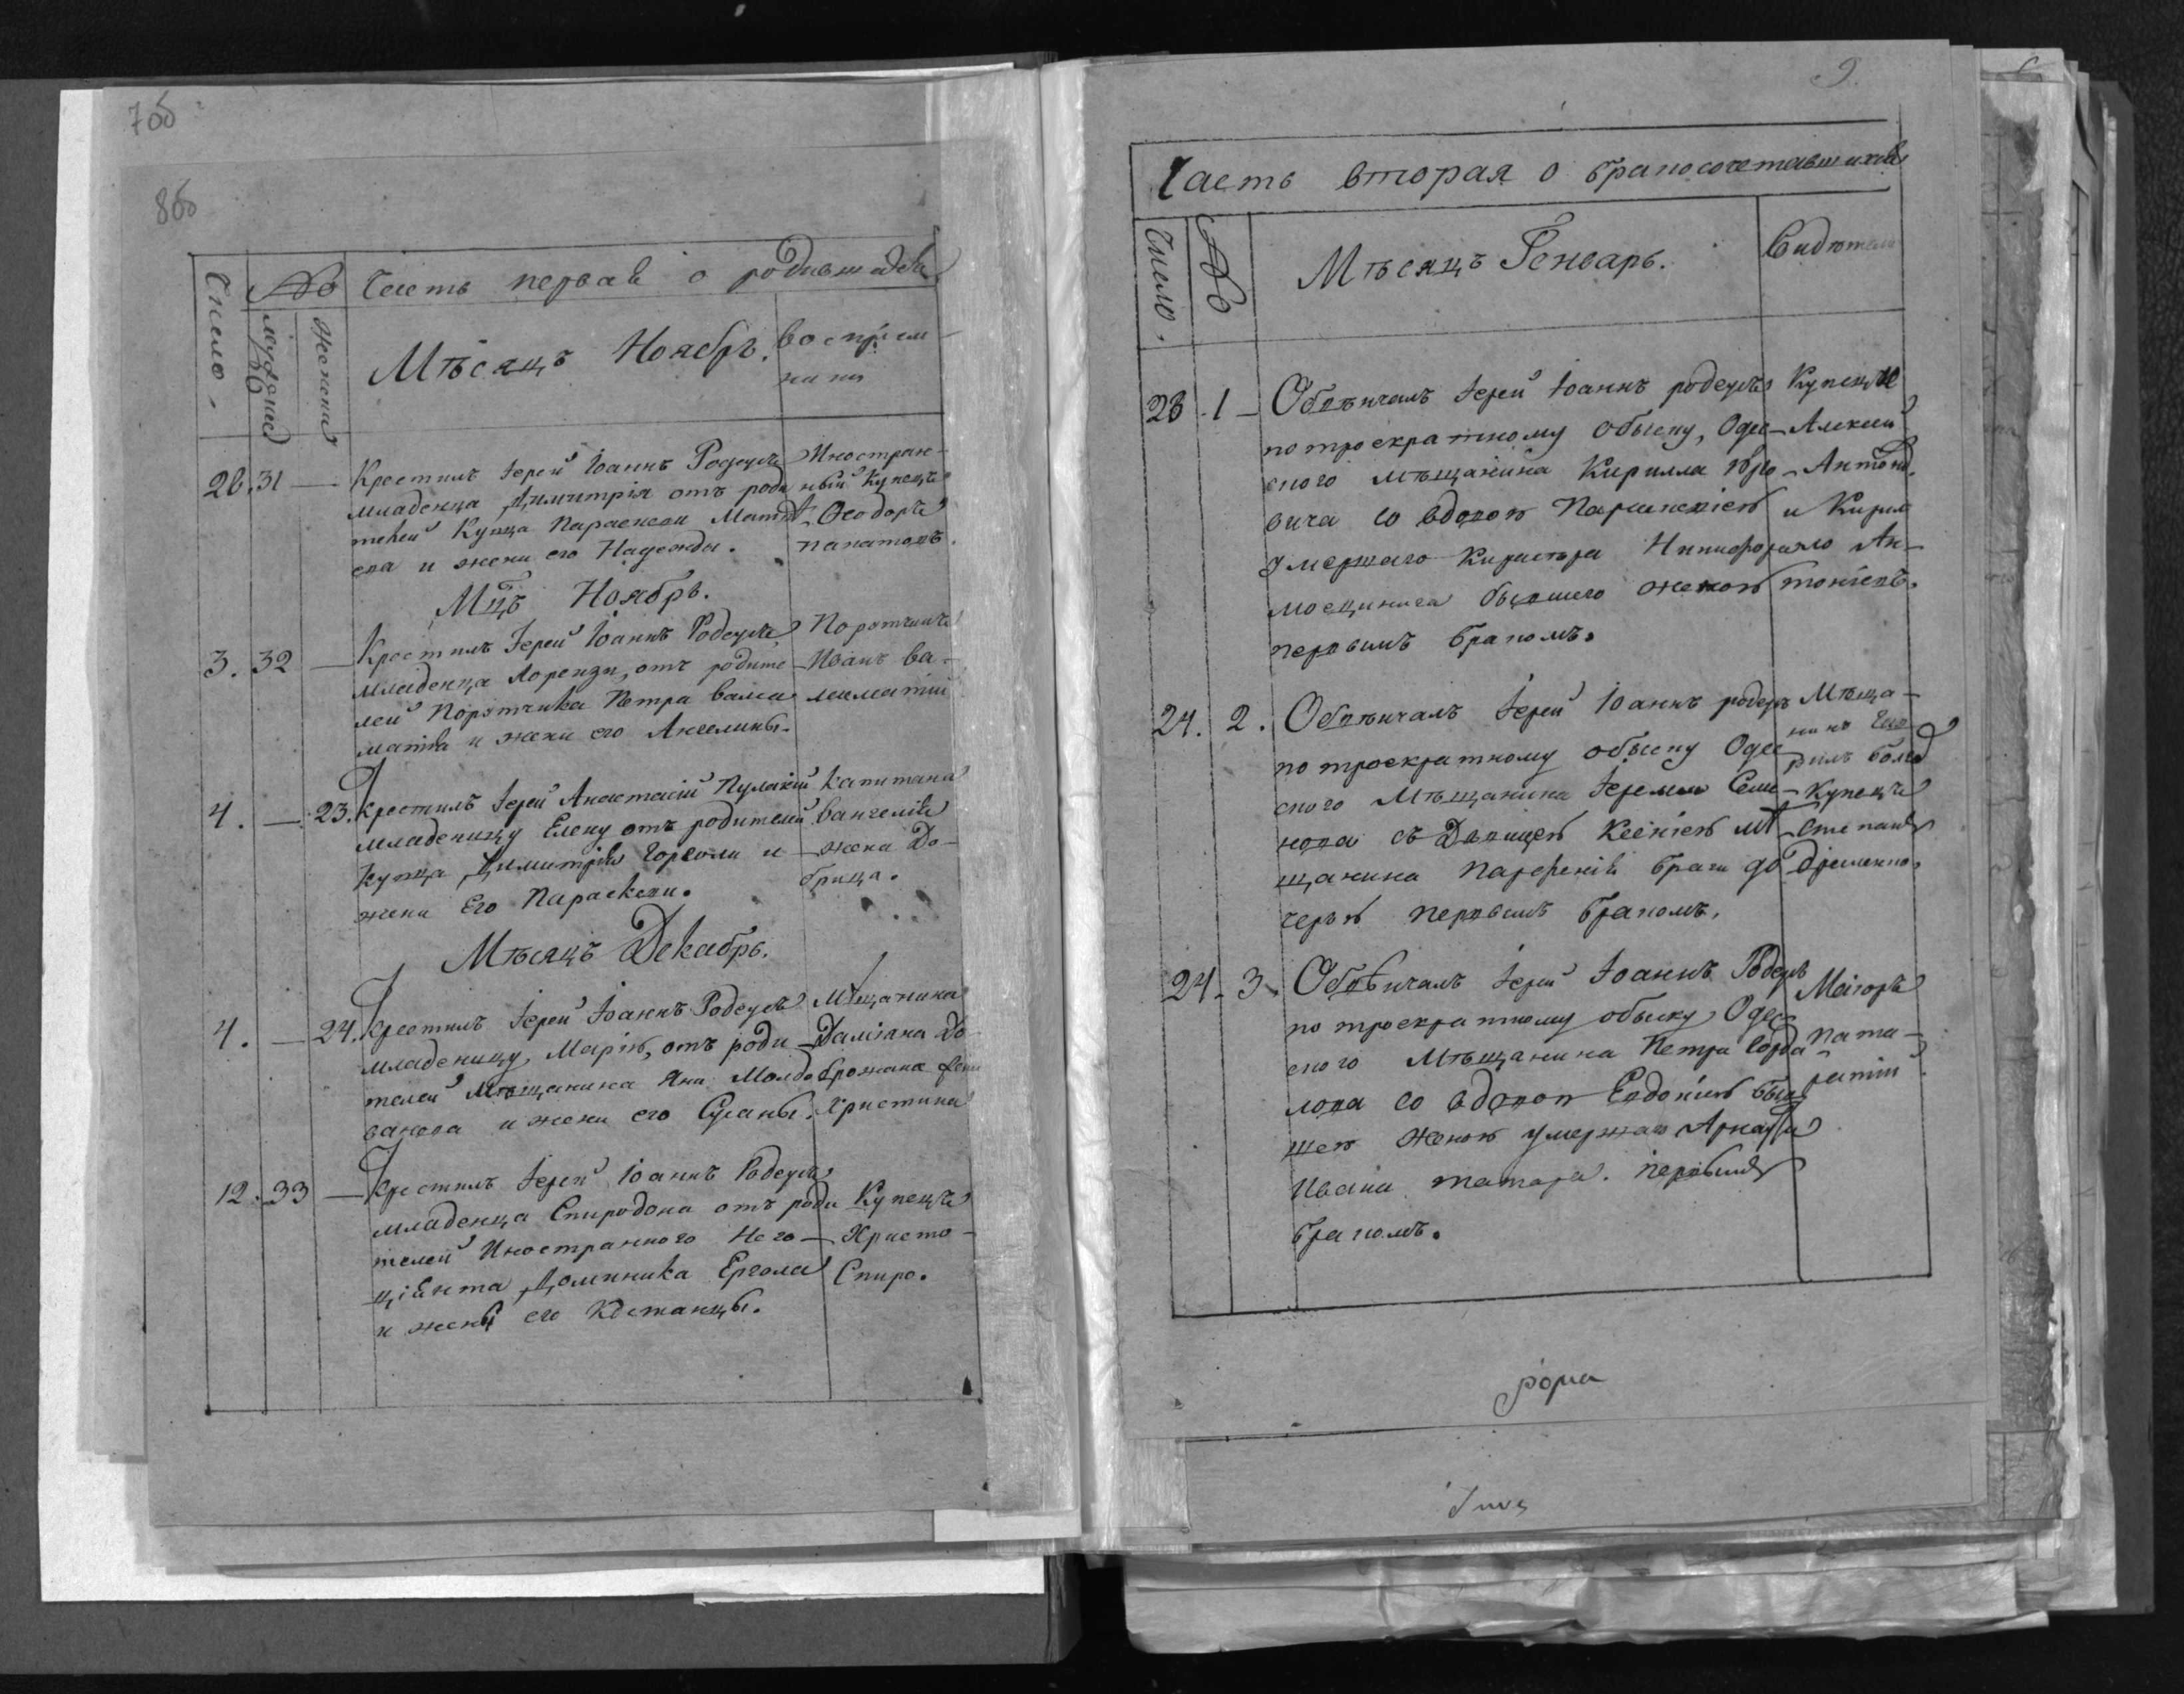 7об
8об
Число.
№
мужеска
женска
Часть первая о родившихся
Мѣсяцъ Ноябрь.
воспріем-
ники
28. 31 — Крестилъ Іерей Іоаннъ Родедъ
младенца Димитрія отъ роди
телей Купца Параскева Матѣ
ева и жени его Надежды.
Иностран-
ный Купецъ
Ѳеодоръ
папатовъ.
Мцъ Ноябрь.
3. 32 — Крестилъ Іерей Іоаннъ Родедъ
младенца Лоренци, отъ родите
лей Порутчика Петра Вала
матія и жени его Ангелины.
Порутчикъ
Иванъ Ва-
ламатій
4. — 23. Крестилъ Іерей Анастасій Пулакій
младеницу Елену отъ родителей
купца Димитрія и
жени Его Параскеви.
Капитана
вангелія
жена До-
брица.
Мѣсяцъ Декабрь.
4. — 24. Крестилъ Іерей Іоаннъ Родедъ
младеницу Марію, отъ роди
телей Мѣщанина Яни Молдо
ванова и жени его Сусаны.
Мѣщанина
Даміана До
брожана жена
Христина
12. 33 — Крестилъ Іерей Іоаннъ Родедъ
младенца Спиродона отъ роди
телей Иностранного Него-
ціянта Доминика Ергола
и жены его Костанцы.
Купецъ
Христо-
Спиро.
9.
Часть вторая о бракосочетавшихся
Число.
№
Мѣсяцъ Генварь.
Видѣтели
23 1 — Обвѣнчалъ Іерей Іоаннъ родедъ
по троекратному обыску, Одес-
ского мѣщанина Кирилла
вича со вдовою Параскевіею
умершаго Никифора
бывшего женою
первымъ бракомъ.
Купецъ
Алексей
Антонов.
и Кирил
ло Ан-
тоніевъ.
24. 2. Обвѣнчалъ Іерей Іоаннъ родедъ
по троекратному обыску Одес
ского Мѣщанина Іеремія Семе-
нова съ Дѣвицею Ксеніею мѣ
щанина Парфенія Браги до
черью первымъ бракомъ.
Мѣща-
нинъ
Купецъ
Степанъ
24. 3. Обвѣнчалъ Іерей Іоаннъ Родедъ
по троекратному обыску Одес
ского Мѣщанина Петра
лова со вдовою Евдокіею быв
шею женою умершаго
Ивана татара. первымъ
бракомъ.
Маіоръ